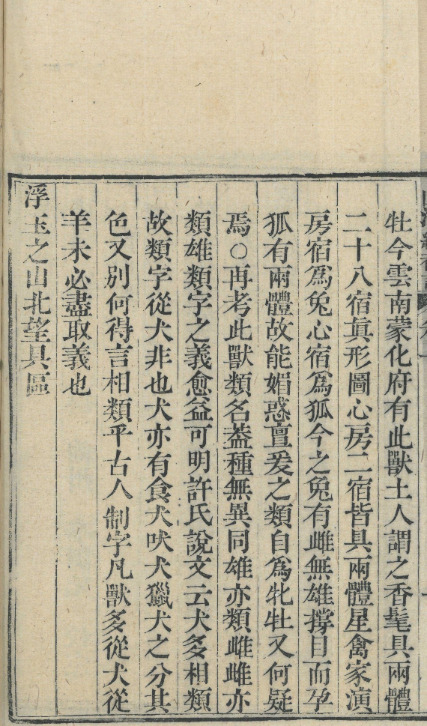 牡今雲南蒙化府有此獸土人謂之香髦具兩體
二十八宿眞形圖心房二宿皆具兩體星禽家演
房宿爲兔心宿爲狐今之兔有雌無雄撐目而孕
狐有兩體故能媚惑亶爰之類自爲牝牡又何疑
焉○再考此獸類名葢種無異同雄亦類雌雌亦
類雄類字之義愈益可明許氏說文云犬多相類
故類字從犬非也犬亦有食犬吠犬獵犬之分其
色又別何得言相類乎古人制字凡獸多從犬從
羊未必盡取義也
浮玉之山北望具區